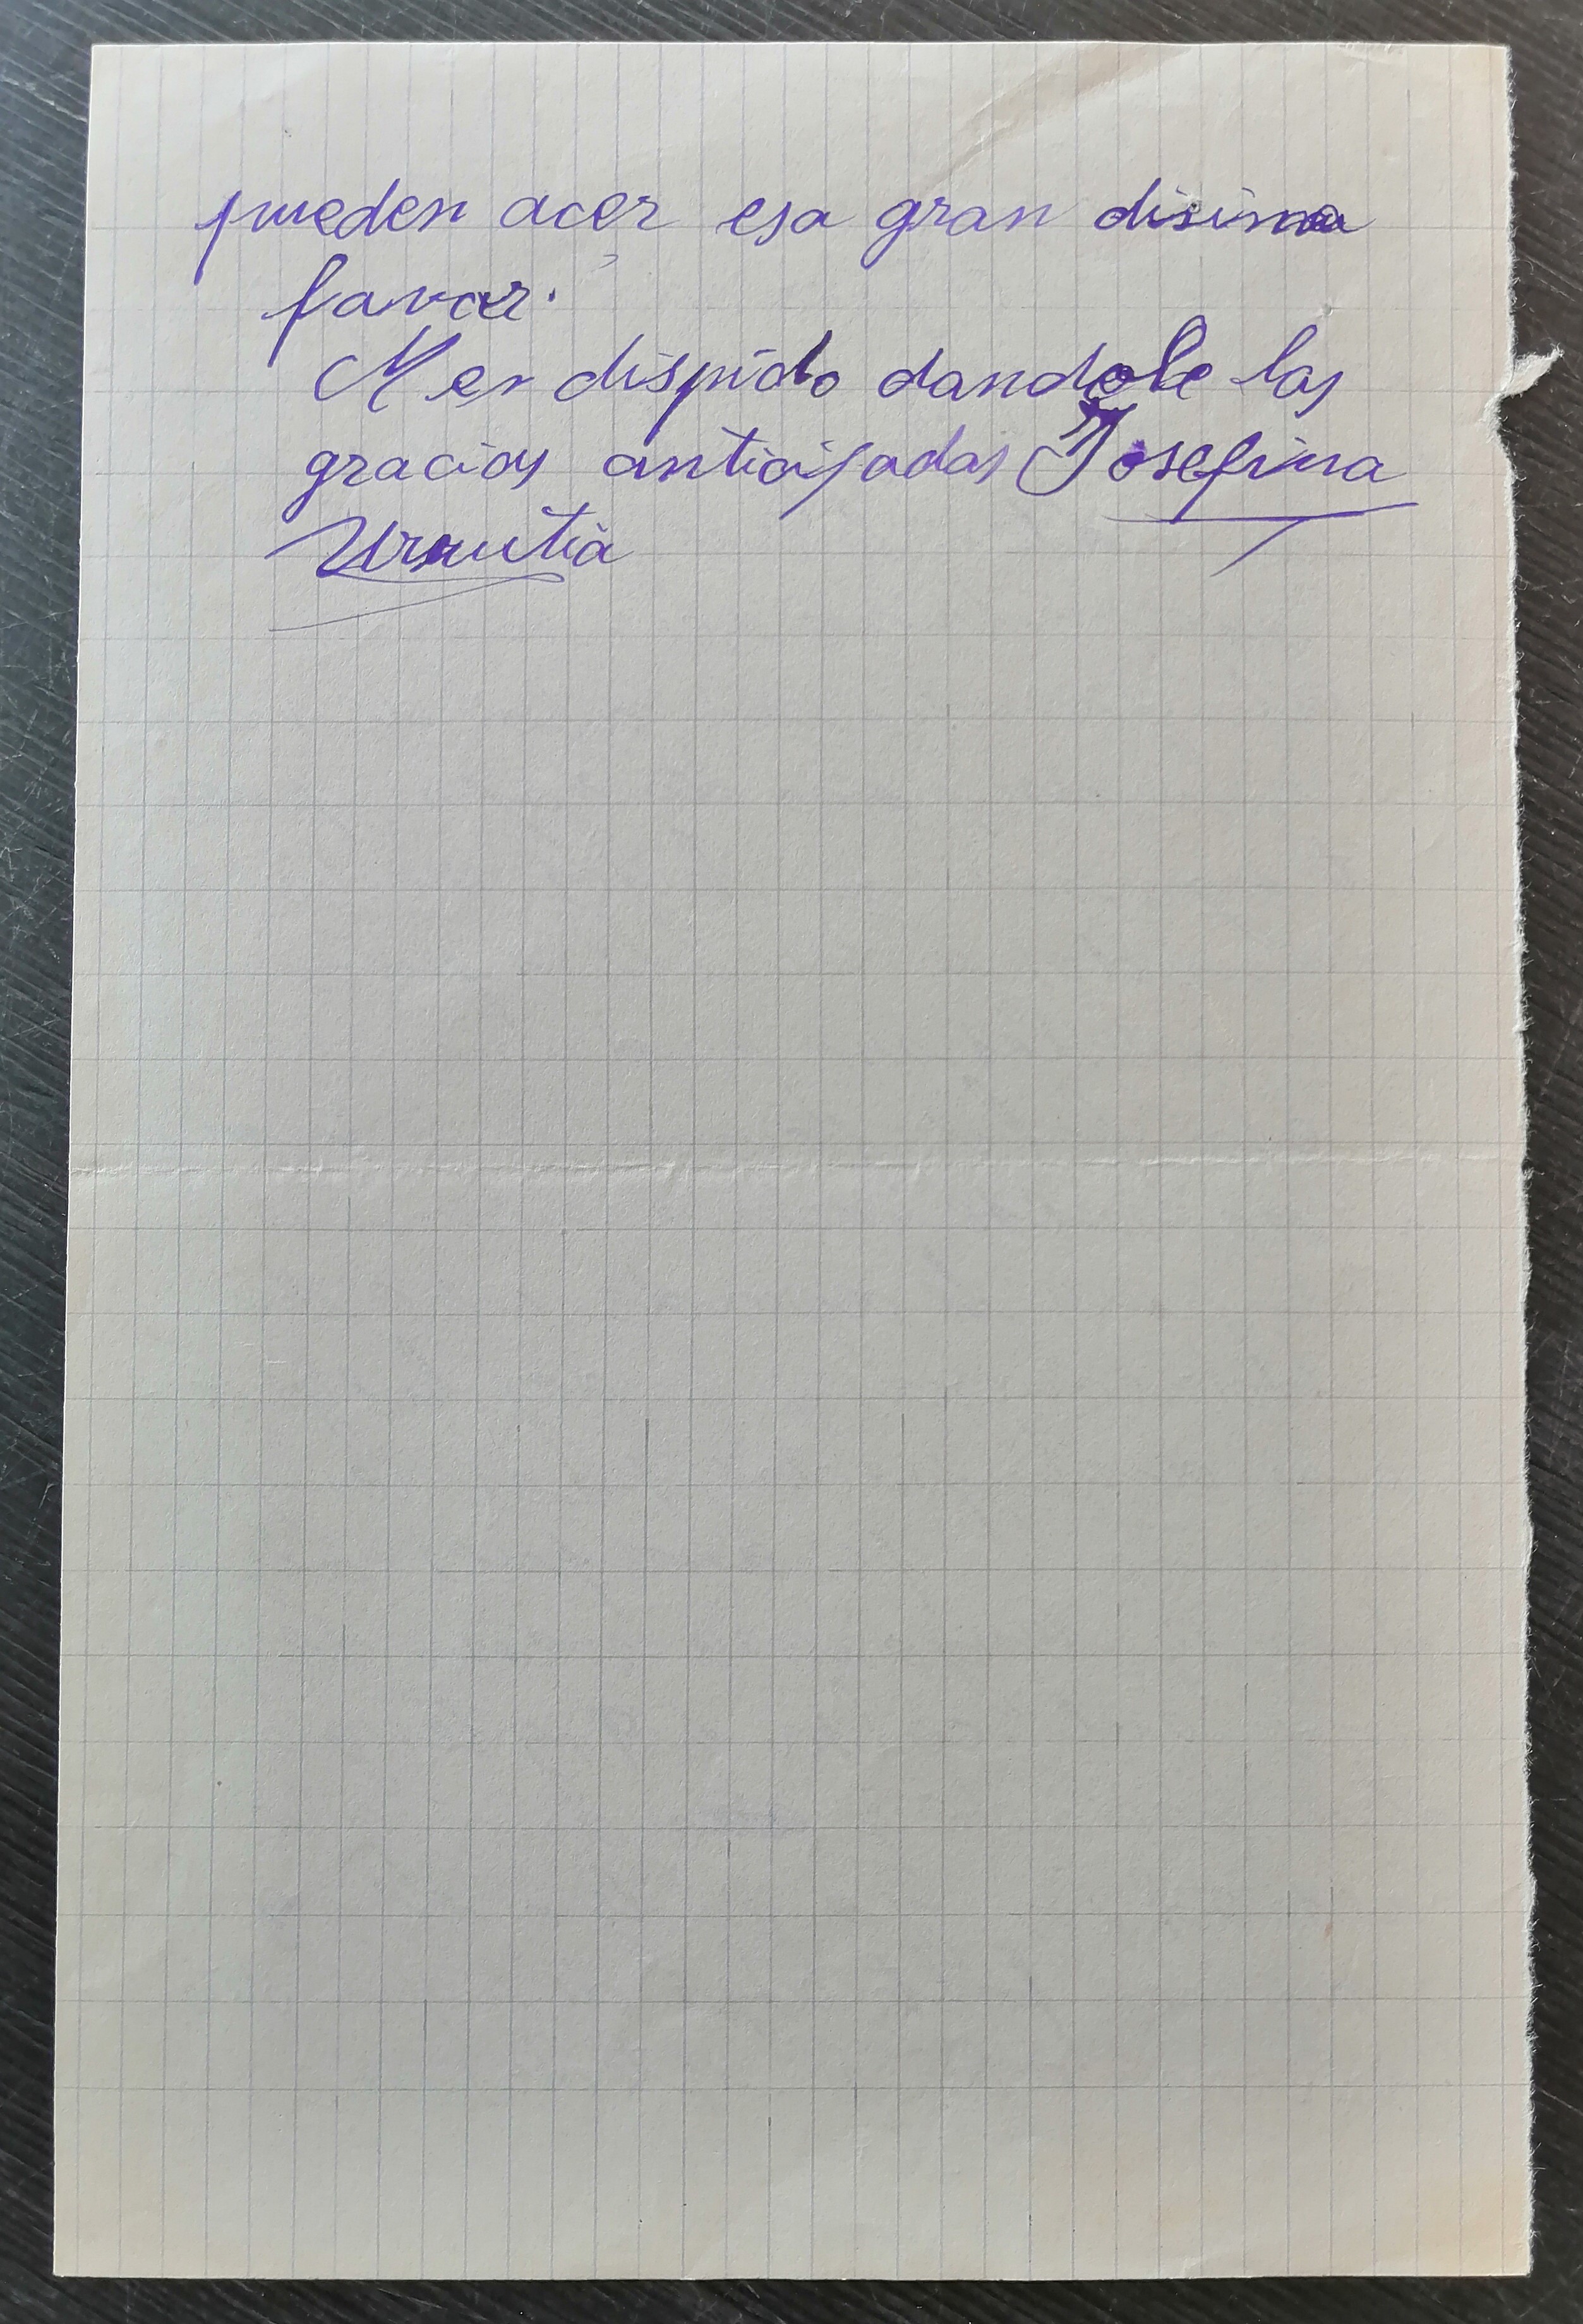 pueden acer esa gran disima
favor.
Mes dispido dandole las
gracias anticipadas Josefina
Urrutia